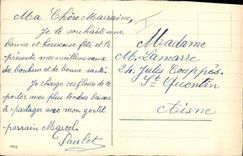 Ma Chère Marraine,
Je te souhaite une
bonne et heureuse fête et te
présente mes meilleurs vœux
de bonheur et de bonne santé.
Je charge ces fleurs de te
porter mes plus tendres baisers
à partager avec mon gentil
parrain Marcel.
Paulet
Madame
M. Lamarre
24, Jules
St Quentin
Aisne